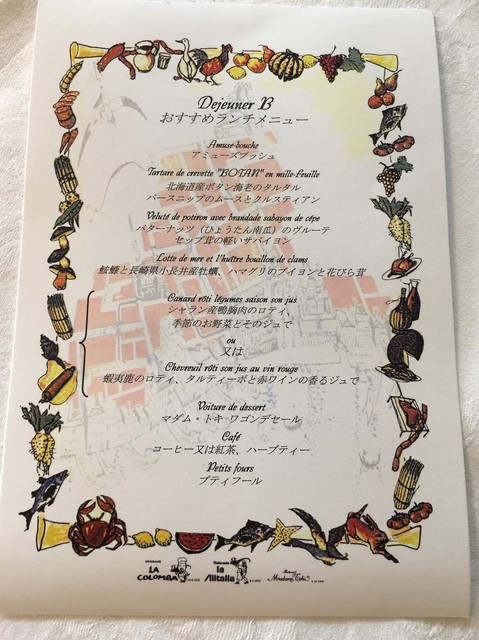 Dejeuner B
おすすめランチメニュー
Amuse-bouche
アミューズブッシュ
Tartare de crevette "BOTAN" en mille-feuille
北海道産ボタン海老のタルタル
パースニップのムースとクルスティアン
Velouté de potiron avec brandade sabayon de cépe
バターナッツ（ひょうたん南瓜）のヴルーテ
セップ茸の軽いサバイヨン
Lotte de mer et l'huître bouillon de clams
鮟鱇と長崎県小長井産牡蠣、ハマグリのブイヨンと花びら茸
Canard rôti légumes saison son jus
シャラン産鴨胸肉のロティ、
季節のお野菜とそのジュで
ou
又は
Chevreuil rôti son jus au vin rouge
蝦夷鹿のロティ、タルティーボと赤ワインの香るジュで
Voiture de dessert
マダム・トキ ワゴンデセール
Café
コーヒー又は紅茶、ハーブティー
Petits fours
プティフール
LA COLOMBA
la Alitalia
Madame Toki